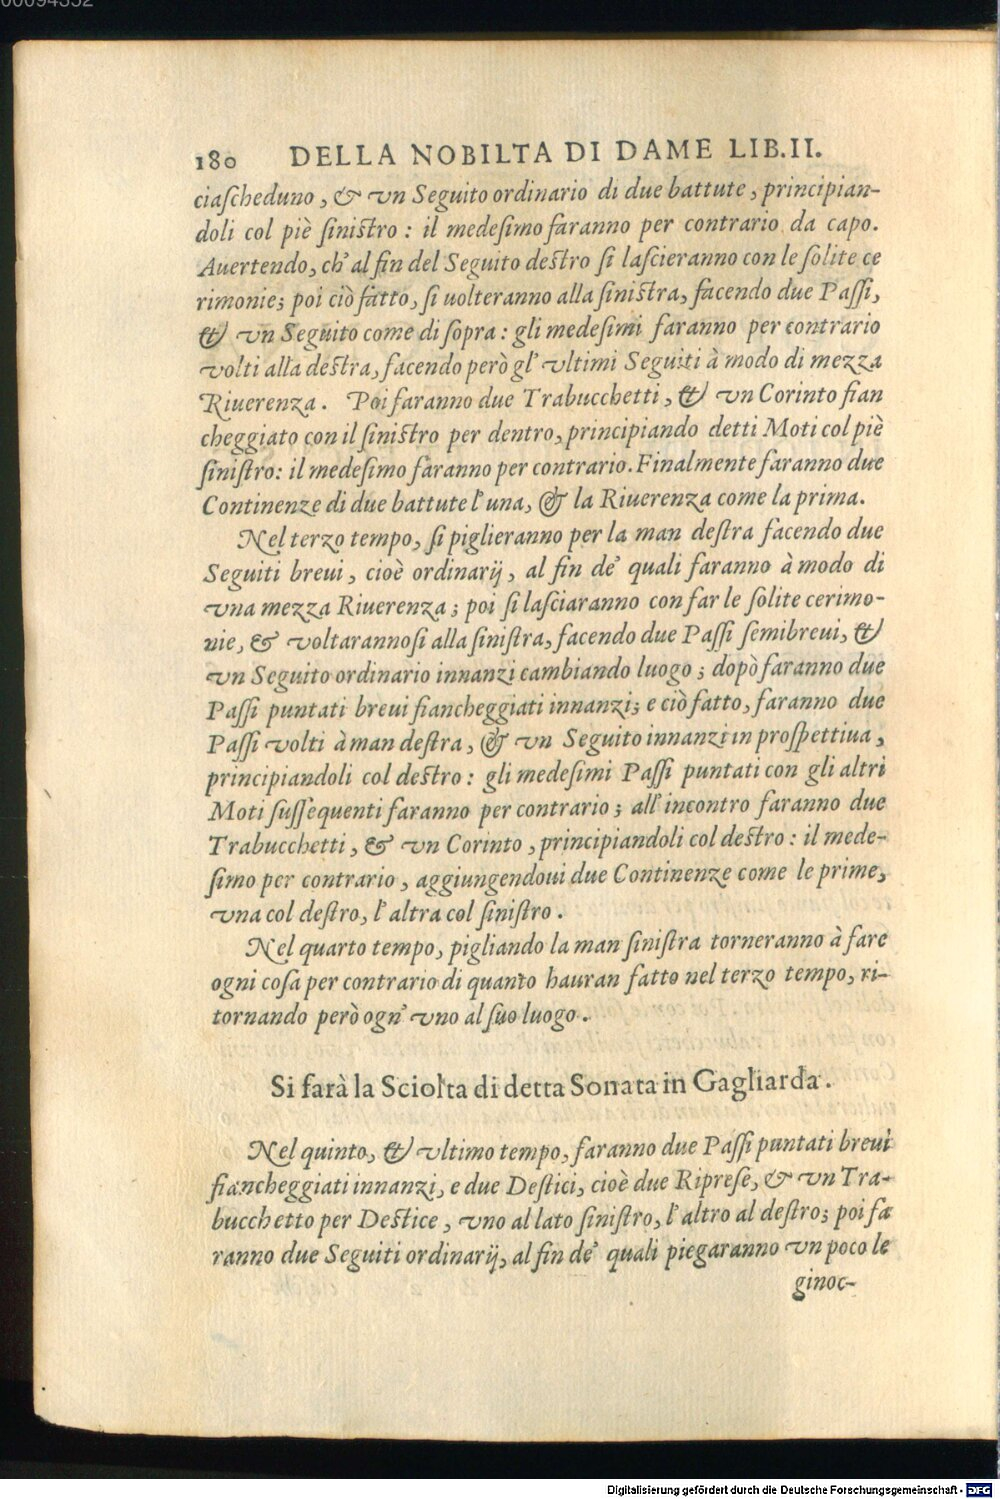 00094352
180 DELLA NOBILTA DI DAME LIB.II.
ciaſcheduno, & vn Seguito ordinario di due battute, principian-
doli col piè ſiniſtro: il medeſimo faranno per contrario da capo.
Auertendo, ch' al fin del Seguito deſtro ſi laſcieranno con le ſolite ce
rimonie; poi ciò fatto, ſi uolteranno alla ſiniſtra, facendo due Paſſi,
& vn Seguito come di ſopra: gli medeſimi faranno per contrario
volti alla deſtra, facendo però gl' vltimi Seguiti à modo di mezza
Riuerenza. Poi faranno due Trabucchetti, & vn Corinto fian
cheggiato con il ſiniſtro per dentro, principiando detti Moti col piè
ſiniſtro: il medeſimo faranno per contrario. Finalmente faranno due
Continenze di due battute l' una, & la Riuerenza come la prima.
Nel terzo tempo, ſi piglieranno per la man deſtra facendo due
Seguiti breui, cioè ordinarij, al fin de' quali faranno à modo di
vna mezza Riuerenza; poi ſi laſciaranno con far le ſolite cerimo-
nie, & voltarannoſi alla ſiniſtra, facendo due Paſſi ſemibreui, &
vn Seguito ordinario innanzi cambiando luogo; dopò faranno due
Paſſi puntati breui fiancheggiati innanzi; e ciò fatto, faranno due
Paſſi volti à man deſtra, & vn Seguito innanzi in proſpettiua,
principiandoli col deſtro: gli medeſimi Paſſi puntati con gli altri
Moti ſuſſequenti faranno per contrario; all' incontro faranno due
Trabucchetti, & vn Corinto, principiandoli col deſtro: il mede-
ſimo per contrario, aggiungendoui due Continenze come le prime,
vna col deſtro, l' altra col ſiniſtro.
Nel quarto tempo, pigliando la man ſiniſtra torneranno à fare
ogni coſa per contrario di quanto hauran fatto nel terzo tempo, ri-
tornando però ogn' vno al ſuo luogo.
Si farà la Sciolta di detta Sonata in Gagliarda.
Nel quinto, & vltimo tempo, faranno due Paſſi puntati breui
fiancheggiati innanzi, e due Deſtici, cioè due Ripreſe, & vn Tra-
bucchetto per Deſtice, vno al lato ſiniſtro, l' altro al deſtro; poi fa
ranno due Seguiti ordinarij, al fin de' quali piegaranno vn poco le
ginoc-
Digitalisierung gefördert durch die Deutsche Forschungsgemeinschaft - DFG